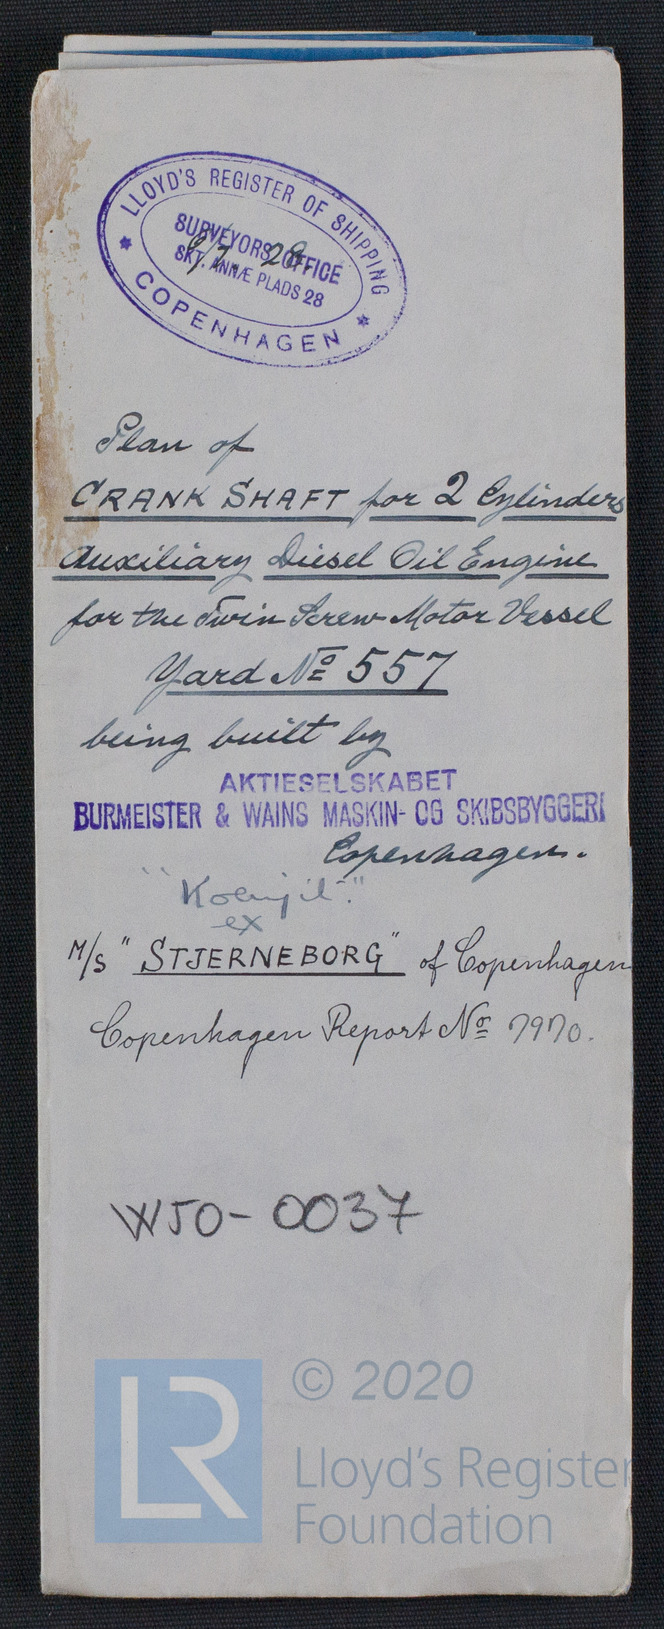 LLOYD'S REGISTER OF SHIPPING
SURVEYORS' OFFICE
SKT. ANNÆ PLADS 28
COPENHAGEN
Plan of
CRANK SHAFT for 2 Cylinders
Auxiliary Diesel Oil Engine
for the Twin Screw Motor Vessel
Yard No 557
being built by
AKTIESELSKABET
BURMEISTER & WAINS MASKIN- OG SKIBSBYGGERI
Copenhagen.
ex
M/S "STJERNEBORG" of Copenhagen
Copenhagen Report No 7970.
WJO-0037
LR
© 2020
Lloyd's Register
Foundation